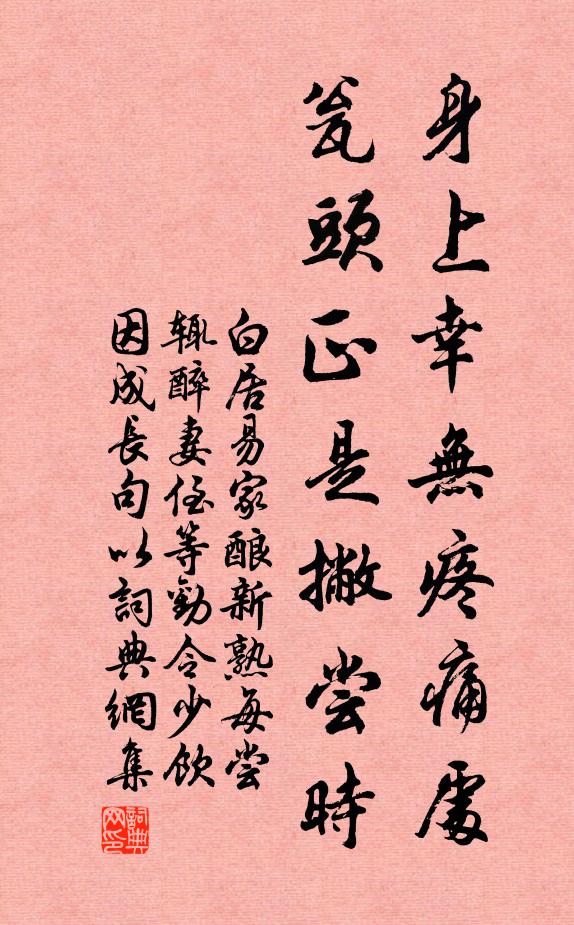 身上幸無疼痛處
瓮頭正是撇尝時
白居易家酿新熟每尝
辄醉妻侄等勸令少飲
因成長句以詞典網集
詞典网印